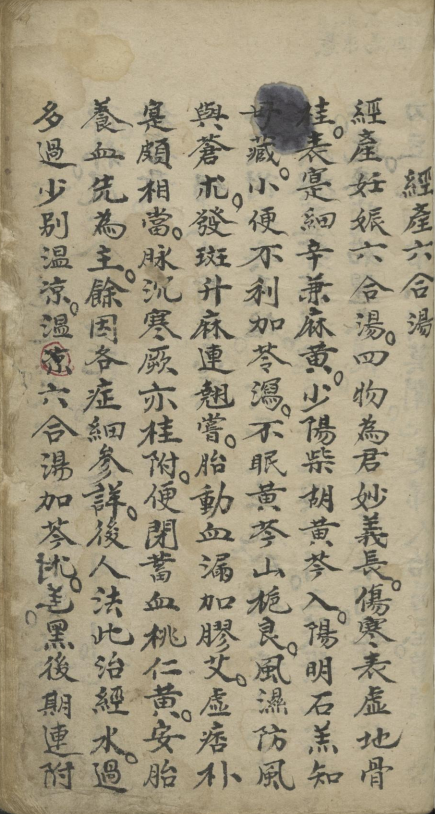 經產六合湯
經產妊娠六合湯。四物為君妙義長。傷寒表虛地骨
桂。表寔細辛兼麻黃。少陽柴胡黃芩入。陽明石羔知
母藏。小便不利加苓瀉。不眠黃芩山梔良。風濕防風
與蒼朮。發斑升麻連翹嘗。胎動血漏加膠艾。虛痞朴
寔頗相當。脉沉寒厥亦桂附。便閉蓄血桃仁黃。安胎
養血先為主。餘因各症細參詳。後人法此治經水。過
多過少別温凉。温凉六合湯加芩
黑後期連附